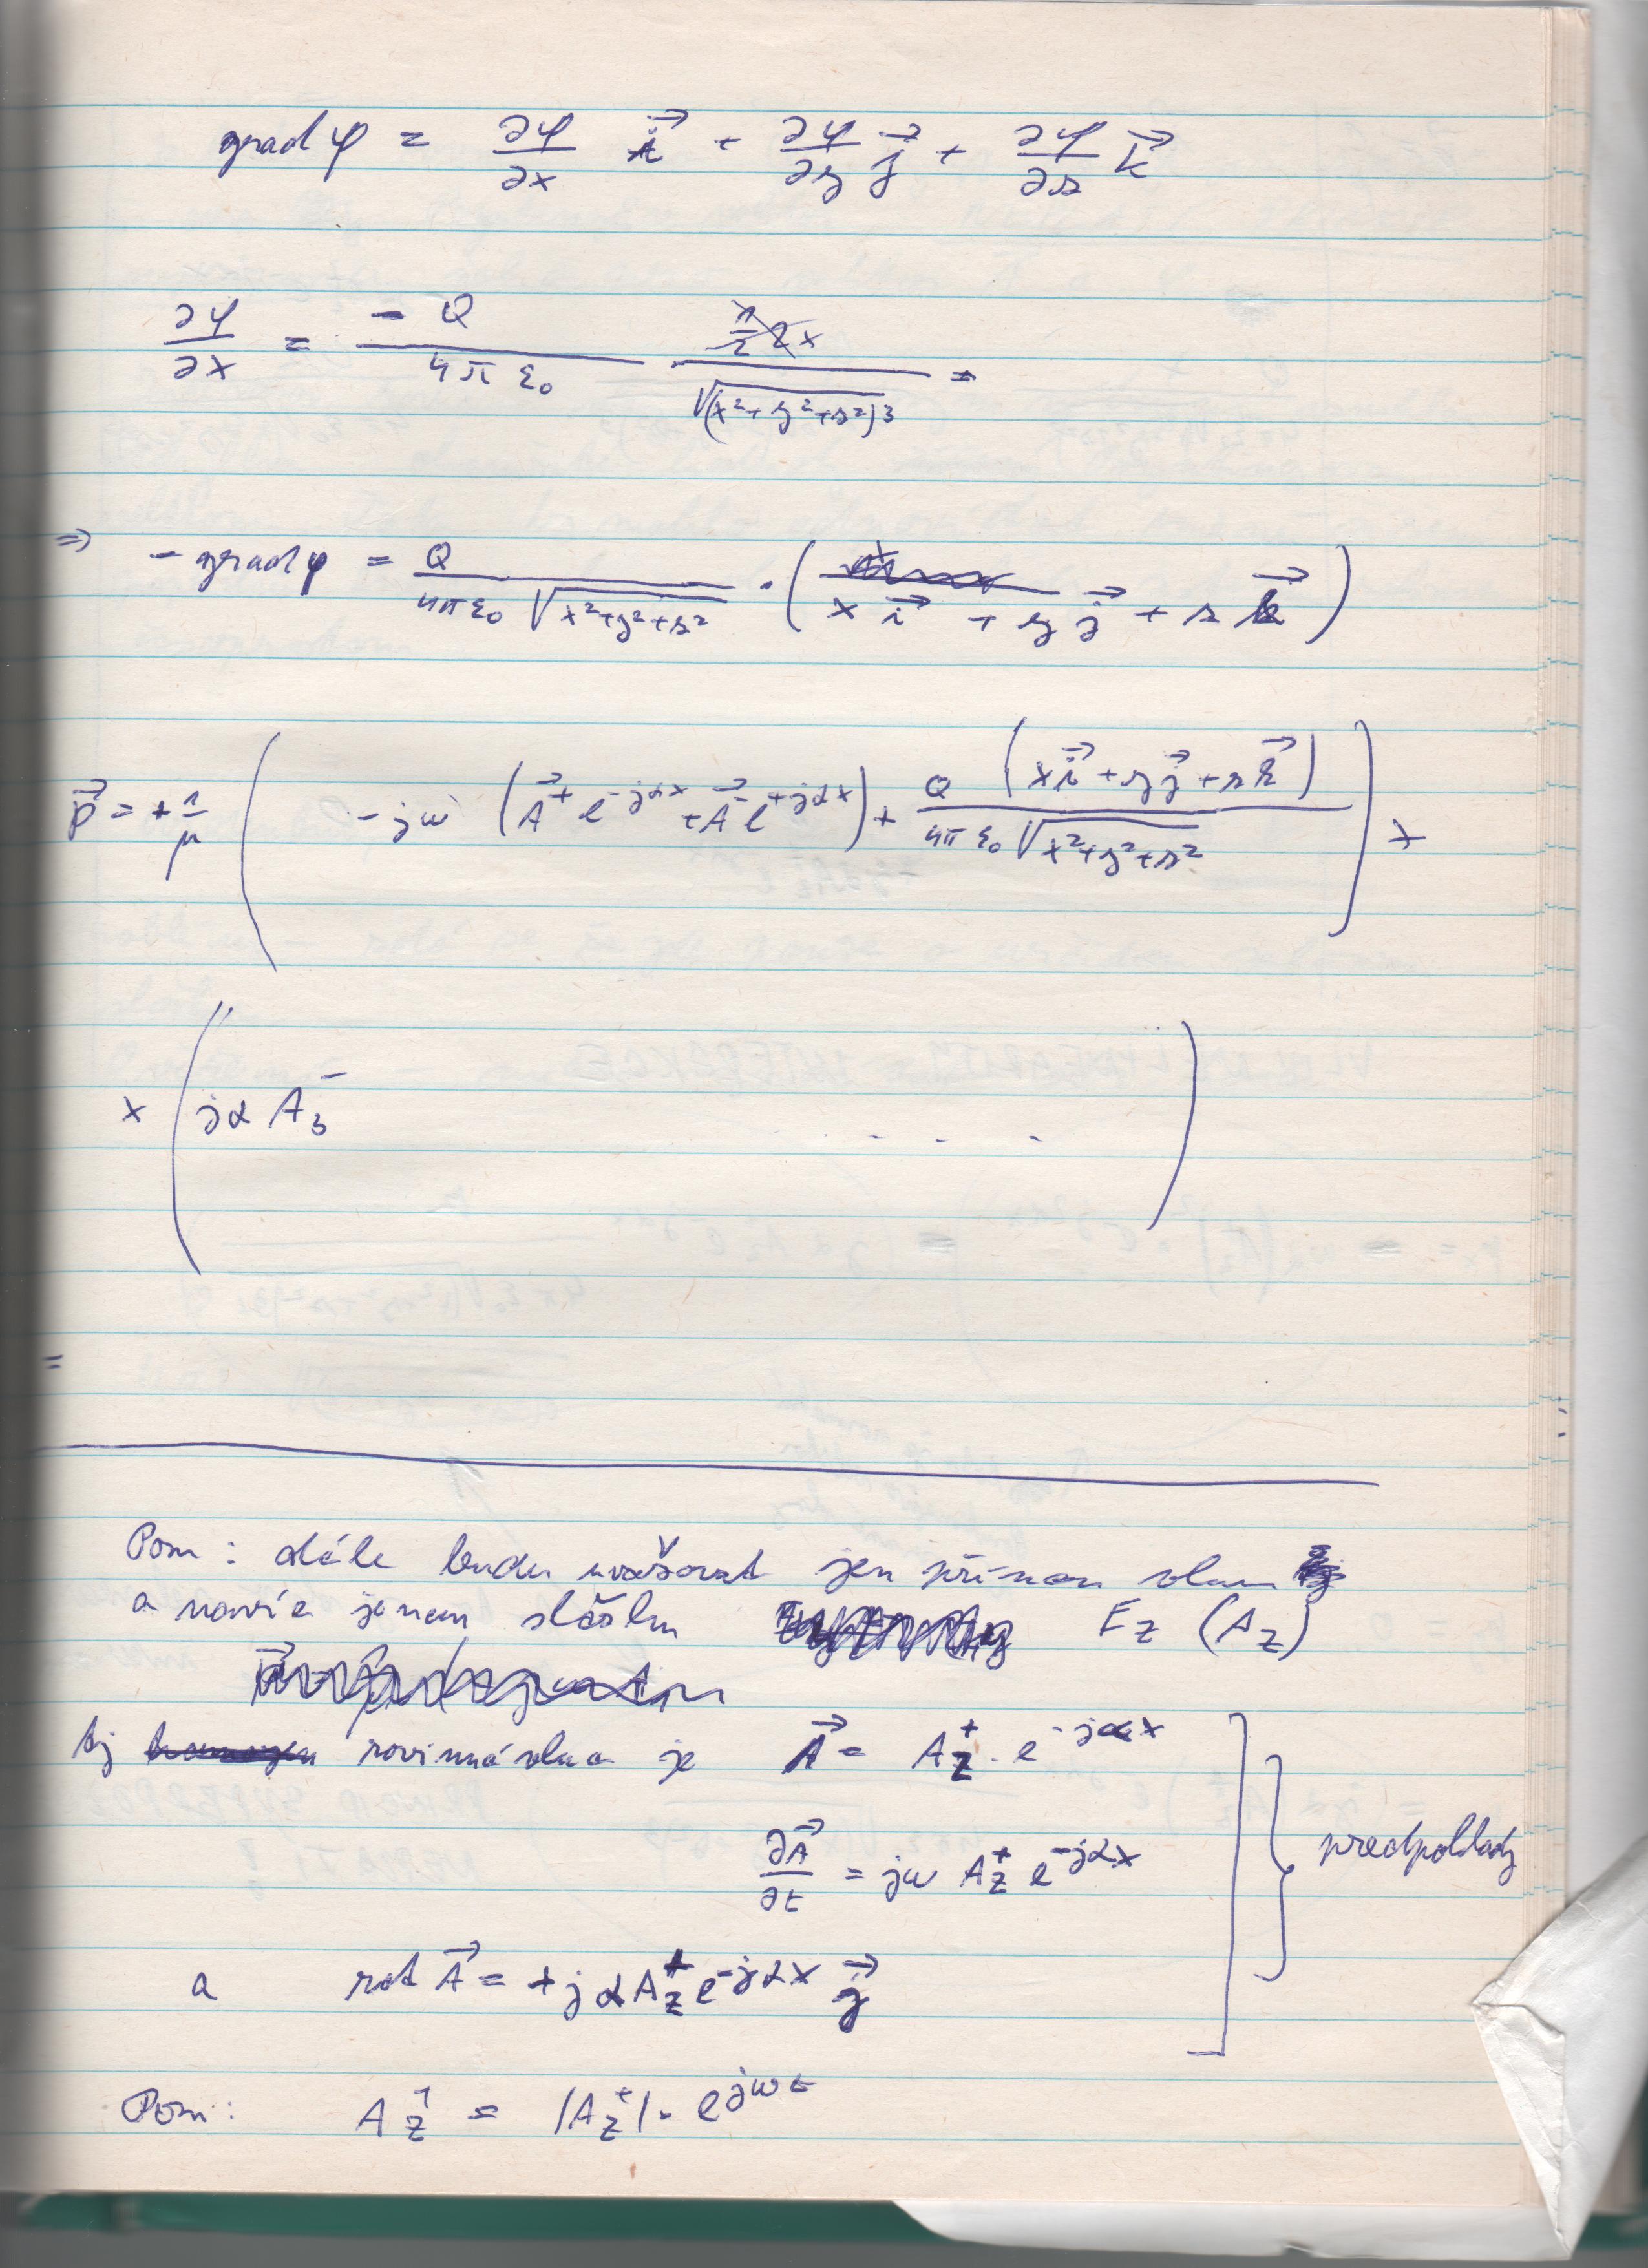 grad φ = ∂φ/∂x i⃗ + ∂φ/∂y j⃗ + ∂φ/∂z k⃗
∂φ/∂x = -Q/(4πε₀) x/√(x²+y²+z²)³ =
⇒ -grad φ = Q/(4πε₀ √(x²+y²+z²)) · (x i⃗ + y j⃗ + z k⃗)
p⃗ = + 1/μ ( -jω (A⃗⁺ e^(-jαx) + A⃗⁻ e^(+jαx)) + Q (x i⃗ + y j⃗ + z k⃗)/(4πε₀ √(x²+y²+z²)) ] ×
× ( jα A₃⁻ . . . )
=
Pozn: dále budu uvažovat jen přímou vlnu
a navíc jenom složku E_Z (A_Z)
tj rovinná vlna je A⃗ = A_Z⁺ · e^(-jαx)
∂A⃗/∂t = jω A_Z⁺ e^(-jαx)
předpoklady
a rot A⃗ = +jα A_Z⁺ e^(-jαx) j⃗
Pozn: A_Z⁺ = |A_Z⁺| · e^(jωt)